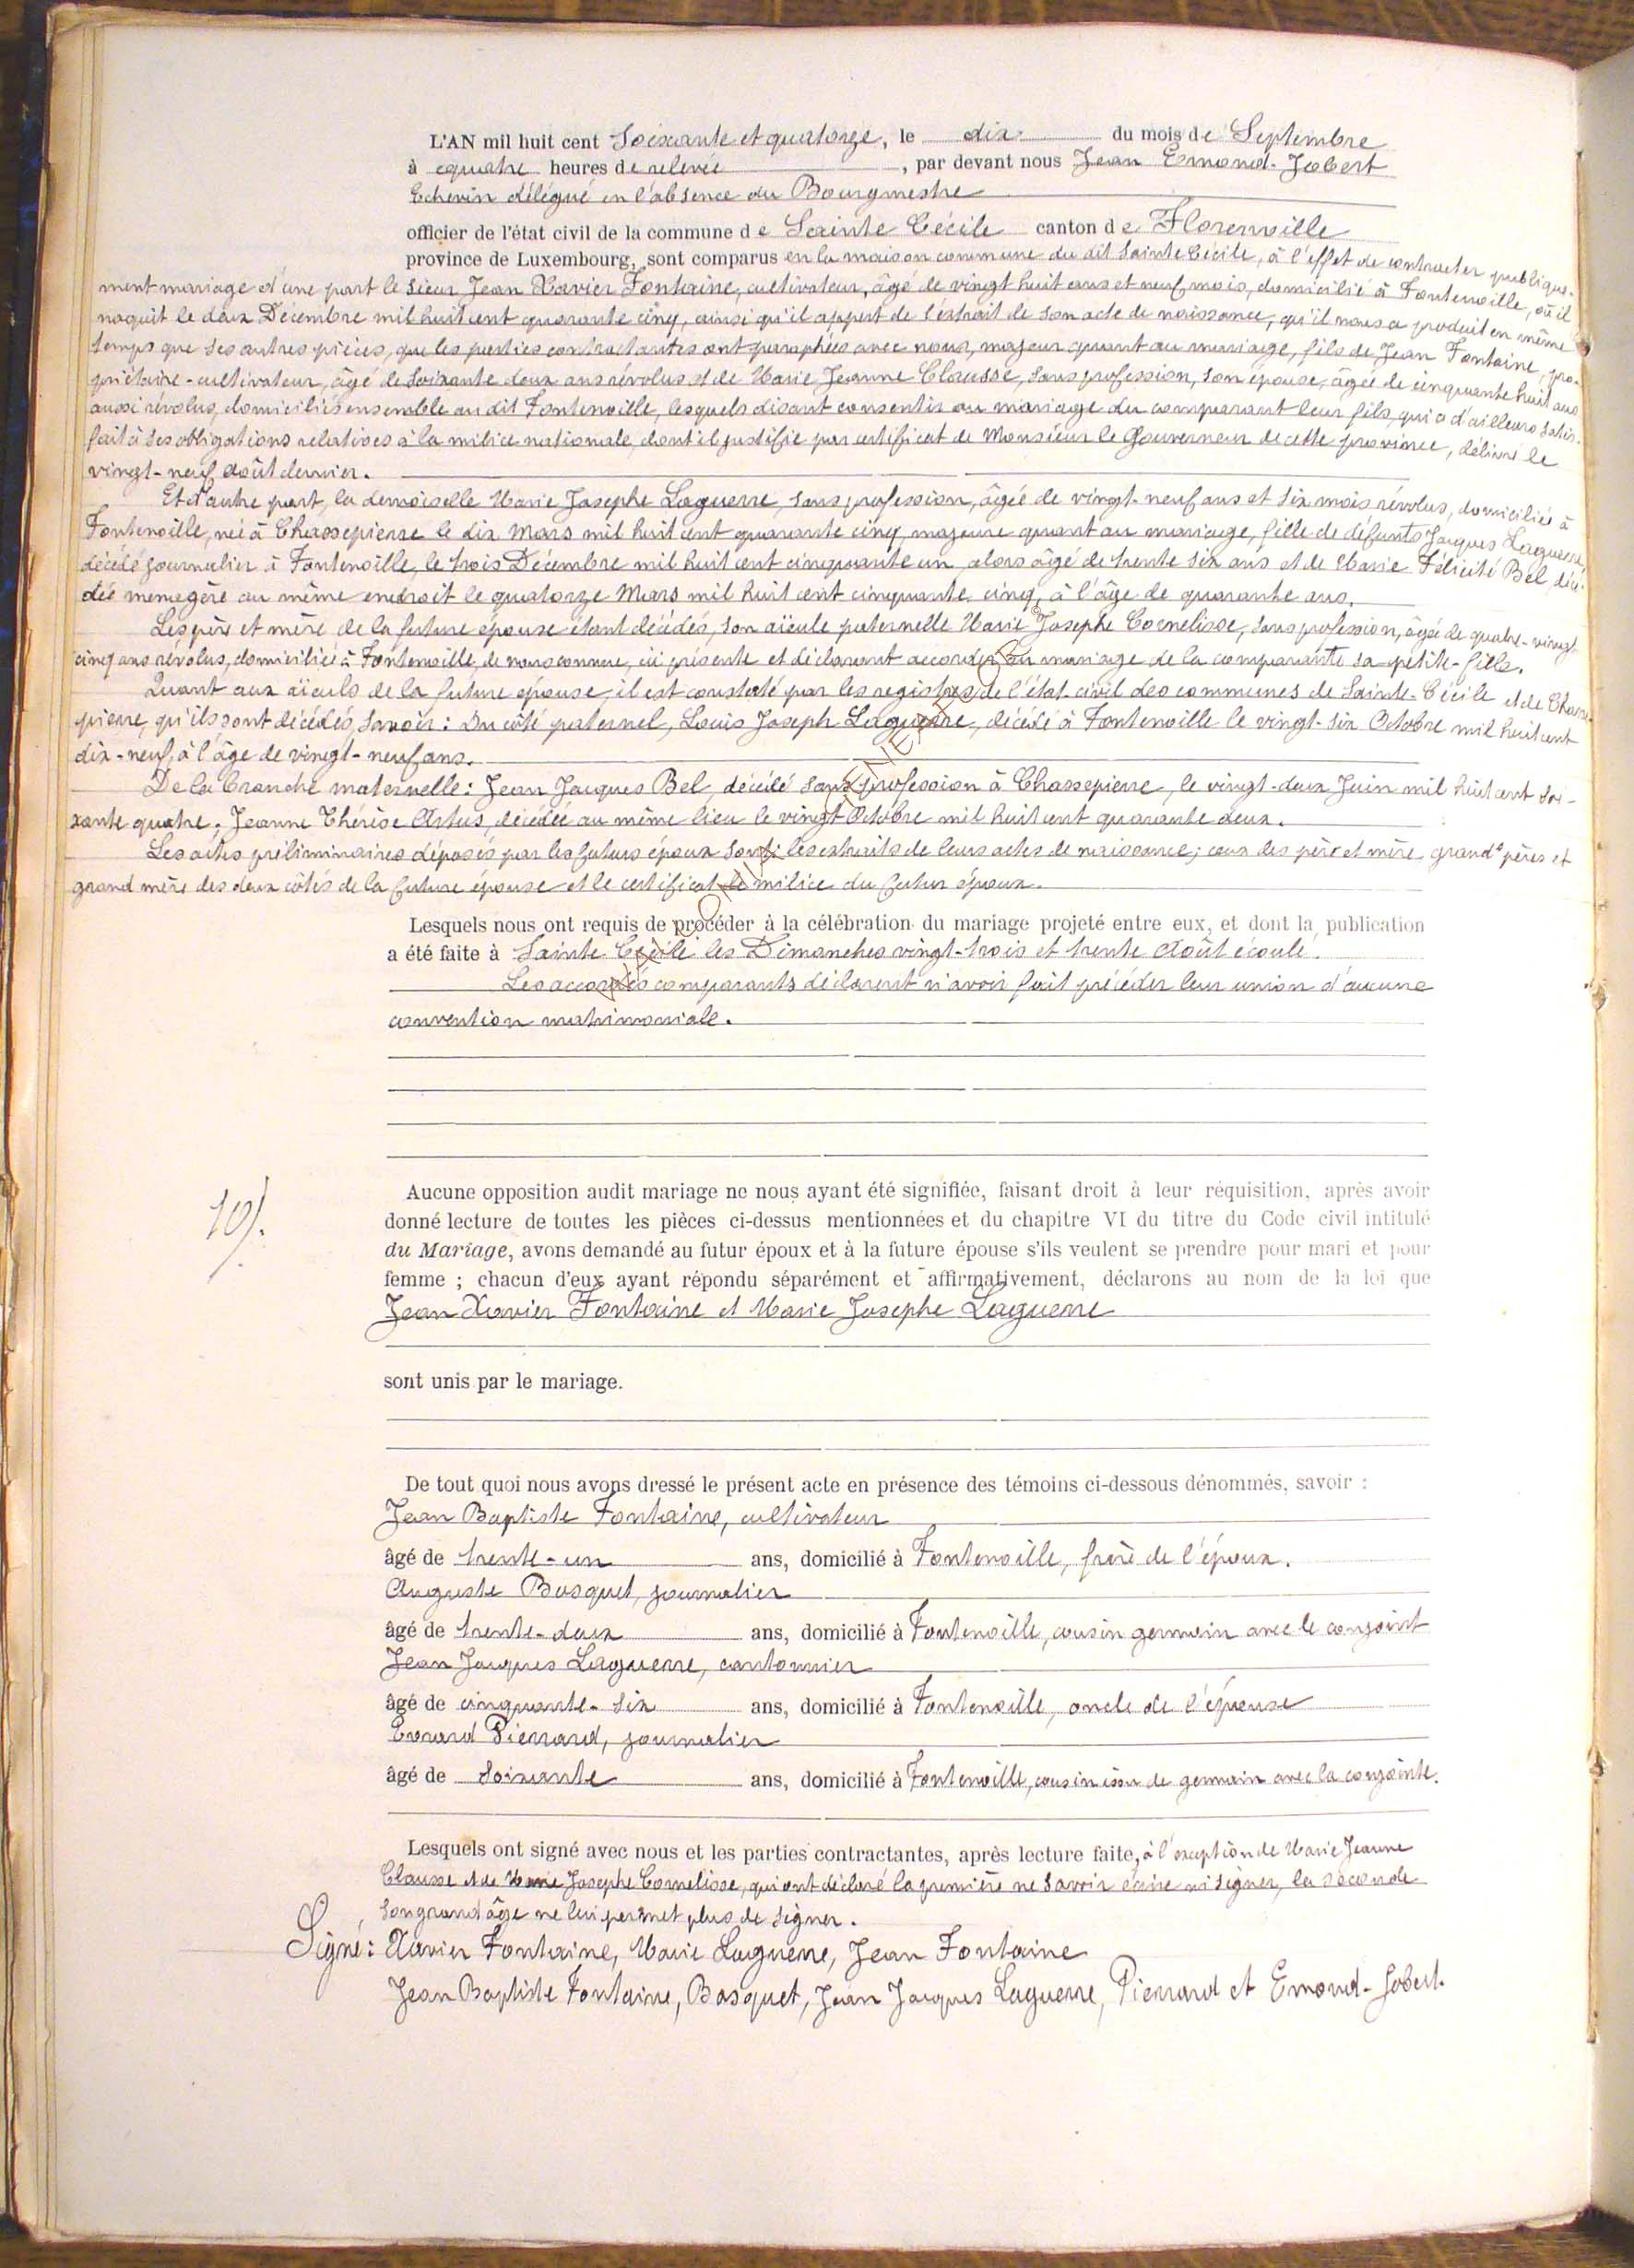 L'AN mil huit cent Soixante et quatorze, le dix du mois de Septembre
à quatre heures de relevée, par devant nous Jean Emond-Jobert
Echevin délégué en l'absence du Bourgmestre
officier de l'état civil de la commune de Sainte Cécile canton de Florenville
province de Luxembourg, sont comparus en la maison commune du dit Sainte Cécile, à l'effet de contracter publique-
ment mariage d'une part le sieur Jean Xavier Fontaine, cultivateur, âgé de vingt huit ans et neuf mois, domicilié à Fontenoille, où il
naquit le deux Décembre mil huit cent quarante cinq, ainsi qu'il appert de l'extrait de son acte de naissance, qu'il nous a produit en même
temps que ses autres pièces, que les parties contractantes ont paraphées avec nous, majeur quant au mariage, fils de Jean Fontaine, pro-
priétaire-cultivateur, âgé de Soixante deux ans révolus et de Marie Jeanne Clausse, sans profession, son épouse, âgée de cinquante huit ans
aussi révolus, domiciliés ensemble au dit Fontenoille, lesquels disant consentir au mariage du comparant leur fils, qui a d'ailleurs satis-
fait à ses obligations relatives à la milice nationale, dont il justifie par certificat de Monsieur le Gouverneur de cette province, délivré le
vingt-neuf Août dernier.
Et d'autre part, la demoiselle Marie Josephe Laguerre, sans profession, âgée de vingt-neuf ans et six mois révolus, domiciliée à
Fontenoille, née à Chassepierre le dix Mars mil huit cent quarante cinq, majeure quant au mariage, fille de défunts Jacques Laguerre,
décédé journalier à Fontenoille, le trois Décembre mil huit cent cinquante un, alors âgé de trente six ans et de Marie Félicité Bel, décé-
dée ménagère au même endroit le quatorze Mars mil huit cent cinquante cinq, à l'âge de quarante ans.
Les père et mère de la future épouse étant décédés, son aïeule paternelle Marie Josephe Cornelisse, sans profession, âgée de quatre-vingt
cinq ans révolus, domiciliée à Fontenoille, de nous connue, ici présente et déclarant accorder au mariage de la comparante sa petite-fille.
Quant aux aïeuls de la future épouse, il est constaté par les registres de l'état-civil des communes de Sainte-Cécile et de Chasse-
pierre, qu'ils sont décédés, savoir: Du côté paternel, Louis Joseph Laguerre, décédé à Fontenoille le vingt-six Octobre mil huit cent
dix-neuf, à l'âge de vingt-neuf ans.
De la branche maternelle: Jean Jacques Bel, décédé sans profession à Chassepierre, le vingt-deux Juin mil huit cent soi-
xante quatre; Jeanne Thérèse Artus, décédée au même lieu le vingt Octobre mil huit cent quarante deux.
Les actes préliminaires déposés par les futurs époux sont: les extraits de leurs actes de naissance; ceux des père et mère, grands pères et
grand mère des deux côtés de la future épouse et le certificat de milice du futur époux.
Lesquels nous ont requis de procéder à la célébration du mariage projeté entre eux, et dont la publication
a été faite à Sainte Cécile les Dimanches vingt-trois et trente Août écoulé.
Les accordés comparants déclarent n'avoir fait précéder leur union d'aucune
convention matrimoniale.
Aucune opposition audit mariage ne nous ayant été signifiée, faisant droit à leur réquisition, après avoir
donné lecture de toutes les pièces ci-dessus mentionnées et du chapitre VI du titre du Code civil intitulé
du Mariage, avons demandé au futur époux et à la future épouse s'ils veulent se prendre pour mari et pour
femme ; chacun d'eux ayant répondu séparément et affirmativement, déclarons au nom de la loi que
10/.
Jean Xavier Fontaine et Marie Josephe Laguerre
sont unis par le mariage.
De tout quoi nous avons dressé le présent acte en présence des témoins ci-dessous dénommés, savoir :
Jean Baptiste Fontaine, cultivateur
âgé de trente-un ans, domicilié à Fontenoille, frère de l'époux.
Auguste Bosquet, journalier
âgé de trente-deux ans, domicilié à Fontenoille, cousin germain avec le conjoint
Jean Jacques Laguerre, cantonnier
âgé de cinquante-six ans, domicilié à Fontenoille, oncle de l'épouse
Evrard Pierrard, journalier
âgé de Soixante ans, domicilié à Fontenoille, cousin issu de germain avec la conjointe.
Lesquels ont signé avec nous et les parties contractantes, après lecture faite, à l'exception de Marie Jeanne
Clausse et de Marie Josephe Cornelisse, qui ont déclaré la première ne savoir écrire ni signer, la seconde
son grand âge ne lui permet plus de signer.
Signé: Xavier Fontaine, Marie Laguerre, Jean Fontaine
Jean Baptiste Fontaine, Bosquet, Jean Jacques Laguerre, Pierrard et Emond-Jobert.